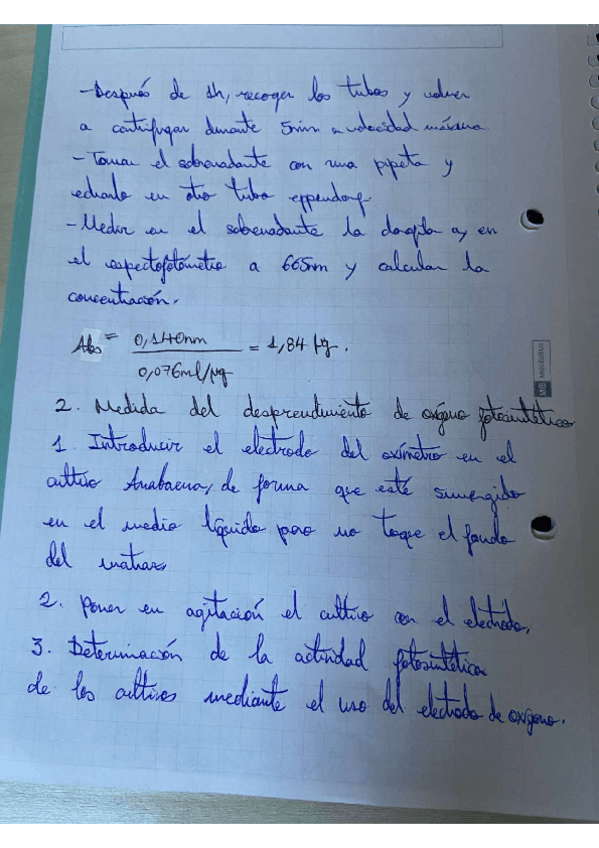 -Después de 1h, recoger los tubos y volver
a centrifugar durante 5min a velocidad máxima.
-Tomar el sobrenadante con una pipeta y
echarlo en otro tubo eppendorf.
-Medir en el sobrenadante la clorofila a, en
el espectofotómetro a 665nm y calcular la
concentración.
Abs = 0,140nm / 0,076ml/µg = 1,84 µg.
2. Medida del desprendimiento de oxígeno fotosintético
1. Introducir el electrodo del oxímetro en el
cultivo Anabaena, de forma que esté sumergido
en el medio líquido pero no toque el fondo
del matraz.
2. Poner en agitación el cultivo con el electrodo.
3. Determinación de la actividad fotosintética
de los cultivos mediante el uso del electrodo de oxígeno.
MIQUELRIUS